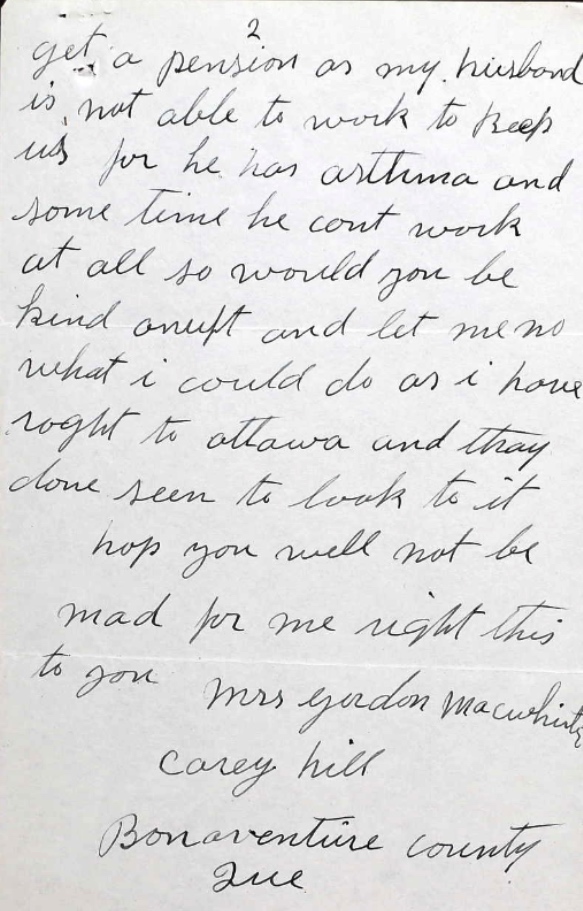 2
get a pension as my husband
is not able to work to keep
us for he has asthma and
some time he cont work
at all so would you be
kind anuft and let me no
what i could do as i have
roght to ottawa and thay
done seen to look to it
hop you well not be
mad for me right this
to you Mrs Gordon Macwhirter
Carey hill
Bonaventure county
Que